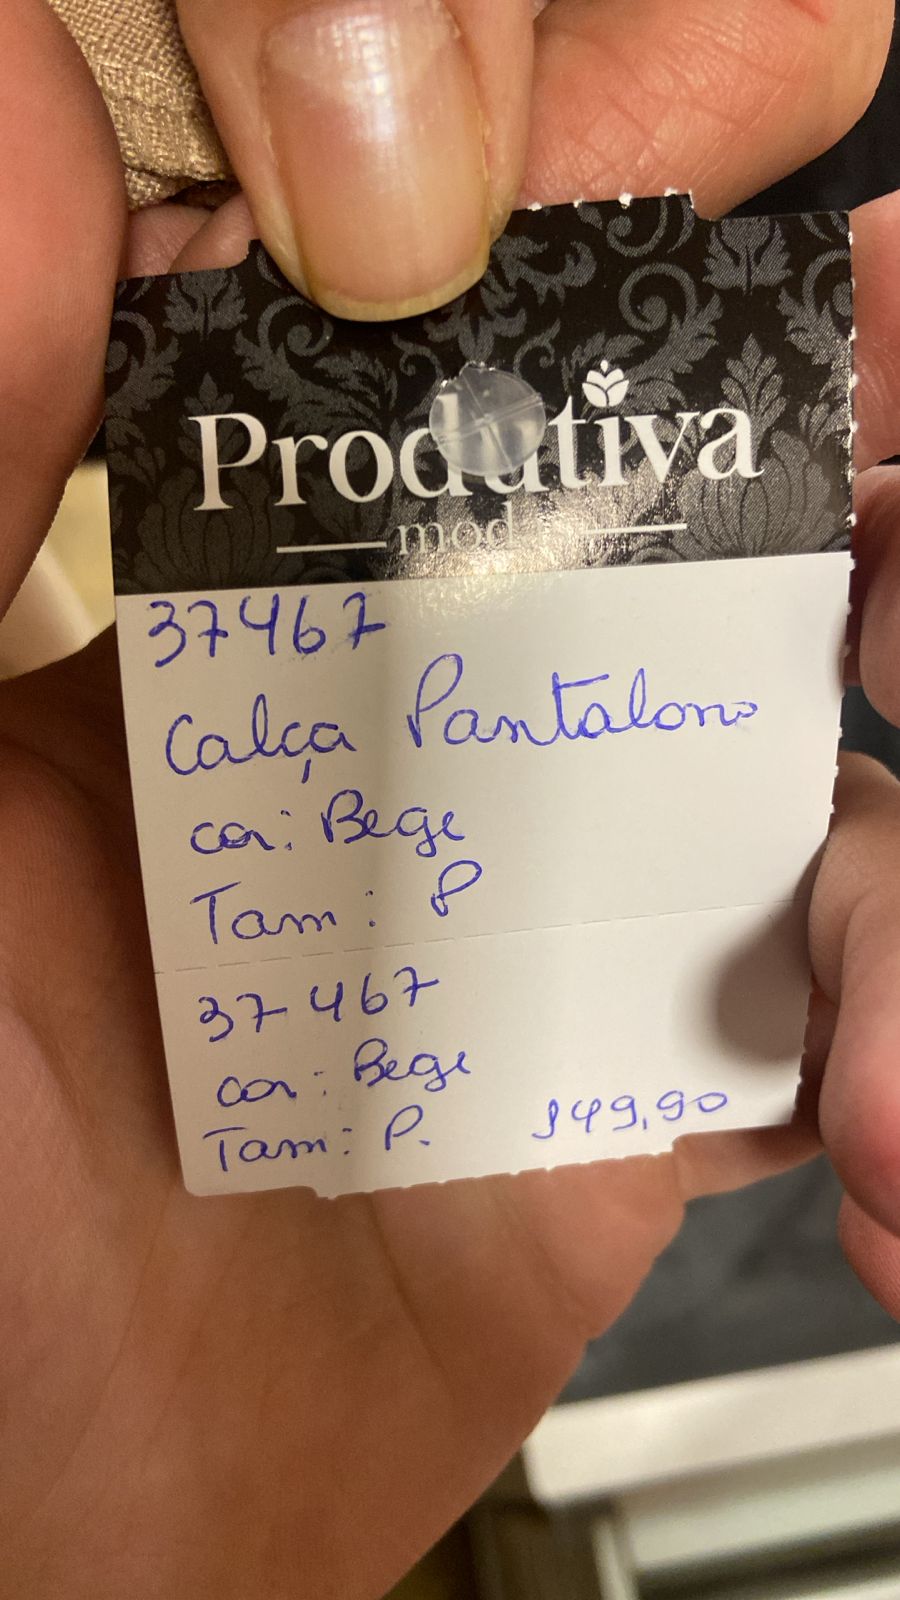 Produtiva
mod
37467
Calça Pantalona
cor: Bege
Tam: P
37467
cor: Bege
Tam: P. 149,90